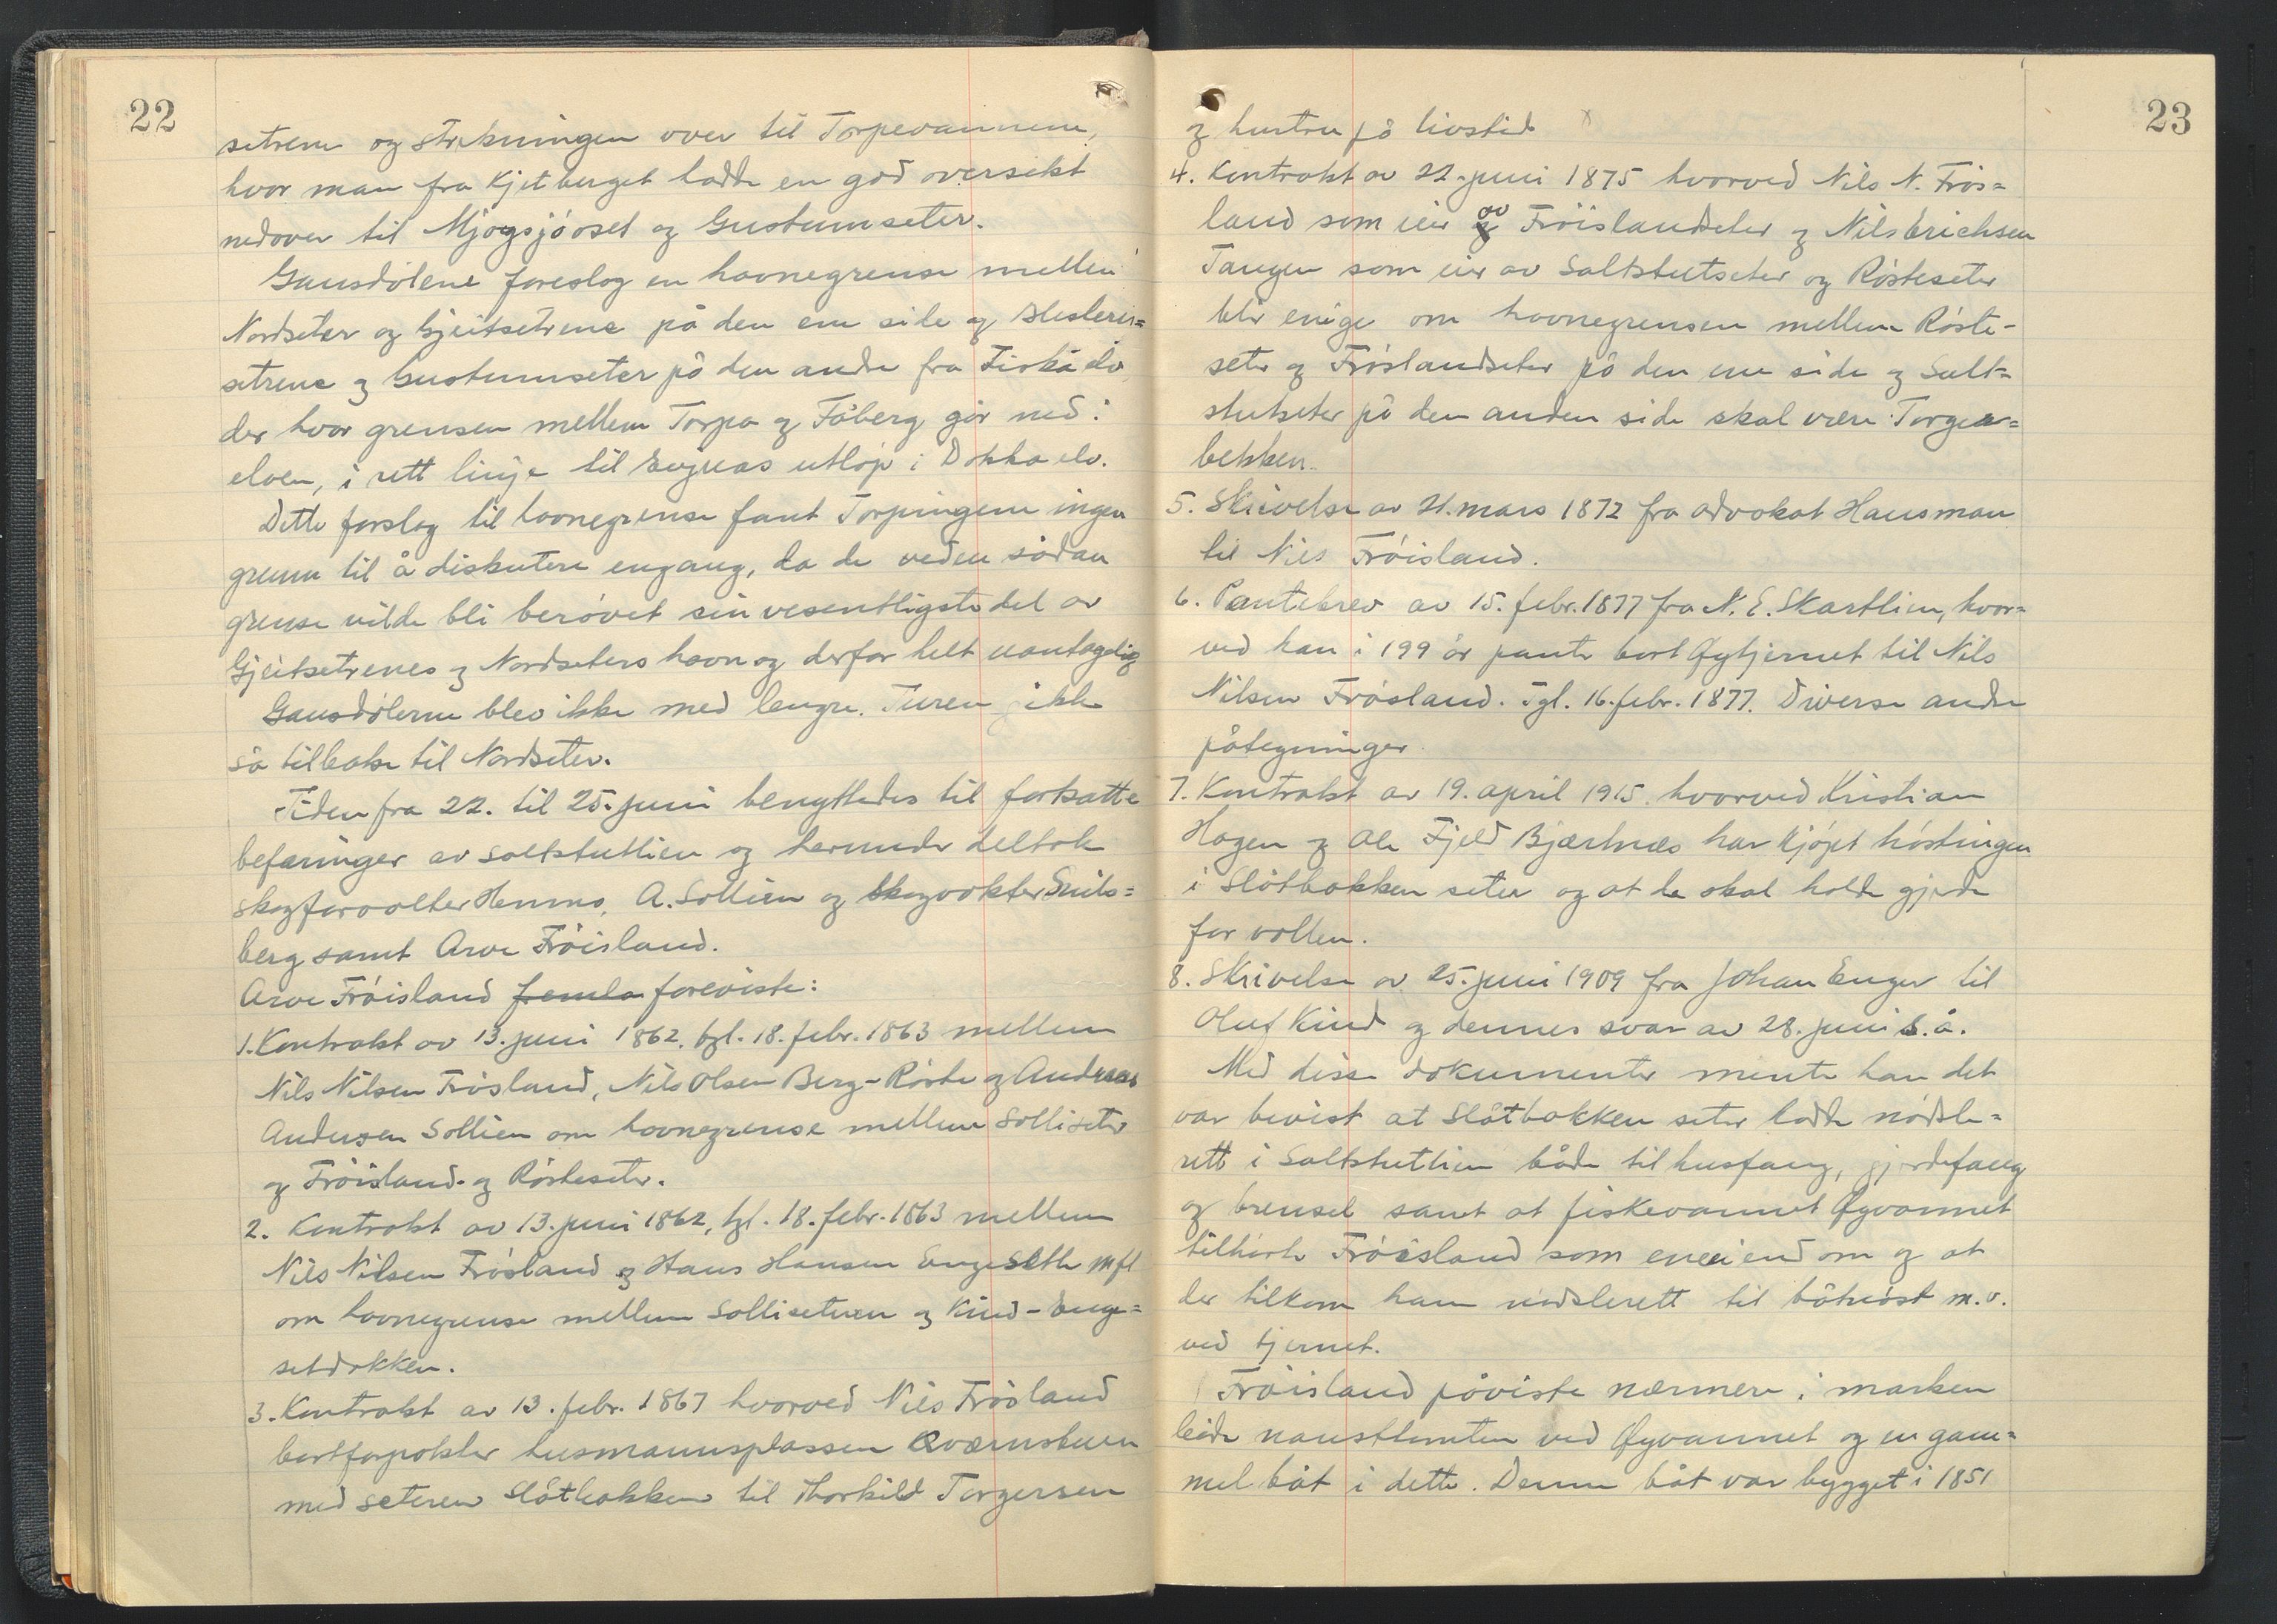 22
setrene og strekningen over til Torpevannene,
hvor man fra Kjetberget hadde en god oversikt
nedover til Mjogsjøoset og Gustumseter.
Gausdølene foreslog en havnegrense mellem
Nordseter og Gjeitsetrene på den ene side og Hesleri=
setrene og Gustumseter på den andre fra Fiskå elv
der hvor grensen mellem Torpa og Fåberg går ned i
elven, i rett linje til Evjuas utløp i Dokka elv.
Dette forslag til havnegrense fant Torpingene ingen
grunn til å diskutere engang, da de ved en sådan
grense vilde bli berøvet sin vesentligste del av
Gjeitsetrenes og Nordseters havn og derfor helt uantagelig
Gausdølerne blev ikke med lengre. Turen gikk
så tilbake til Nordseter.
Tiden fra 22. til 25. juni benyttedes til fortsatte
befaringer av Saltstutlien og herunder deltok
skogforvalter Hennes, A. Sollien og skogvokter Snils=
berg samt Arve Frøisland.
Arve Frøisland fremla foreviste:
1. Kontrakt av 13. juni 1862. tgl. 18. febr. 1863 mellem
Nils Nilsen Frøsland, Nils Olsen Berg-Røste og Andreas
Andersen Sollien om havnegrense mellem Solliseter
og Frøisland- og Røsteseter.
2. Kontrakt av 13. juni 1862, tgl. 18. febr. 1863 mellem
Nils Nilsen Frøsland og Hans Hansen Engeseth mfl
om havnegrense mellem Sollisetren og Kind-Enge=
setdokken.
3. Kontrakt av 13. febr. 1867 hvorved Nils Frøsland
bortforpakter husmannsplassen Kværnstuen
med seteren Slåtbakken til Thorkild Torgersen
23
og hustru på livstid
4. Kontrakt av 22. juni 1875 hvorved Nils N. Frøs=
land som eier av Frøislandseter og Nils Erichsen
Tangen som eier av Saltstutseter og Røsteseter
blir enige om havnegrensen mellem Røste-
seter og Frøslandseter på den ene side og Salt=
stutseter på den anden side skal være Torger=
bekken.
5. Skrivelse av 21. mars 1872 fra advokat Hausman
til Nils Frøisland.
6. Pantebrev av 15. febr. 1877 fra N. E. Skartlien, hvor=
ved han i 199 år panter bort Øytjernet til Nils
Nilsen Frøsland. Tgl. 16. febr. 1877. Diverse andre
påtegninger.
7. Kontrakt av 19. april 1915. hvorved Kristian
Hagen og Ole Fjeld Bjærtnæs har kjøpt høstningen
i Slåtbakken seter og at de skal holde gjerde
for vollen.
8. Skrivelse av 25. juni 1909 fra Johan Enger til
Oluf Kind og dennes svar av 28. juni s. å.
Med disse dokumenter mente han det
var bevist at Slåtbakken seter hadde nødsle=
rett i Saltstutlien både til husfang, gjerdefang
og brensel samt at fiskevannet Øyvannet
tilhørte Frøisland som eneeiendom og at
der tilkom ham nødslerett til båtnøst m.v.
ved tjernet.
Frøisland påviste nærmere i marken
både nausttomten ved Øyvannet og en gam=
mel båt i dette. Denne båt var bygget i 1851